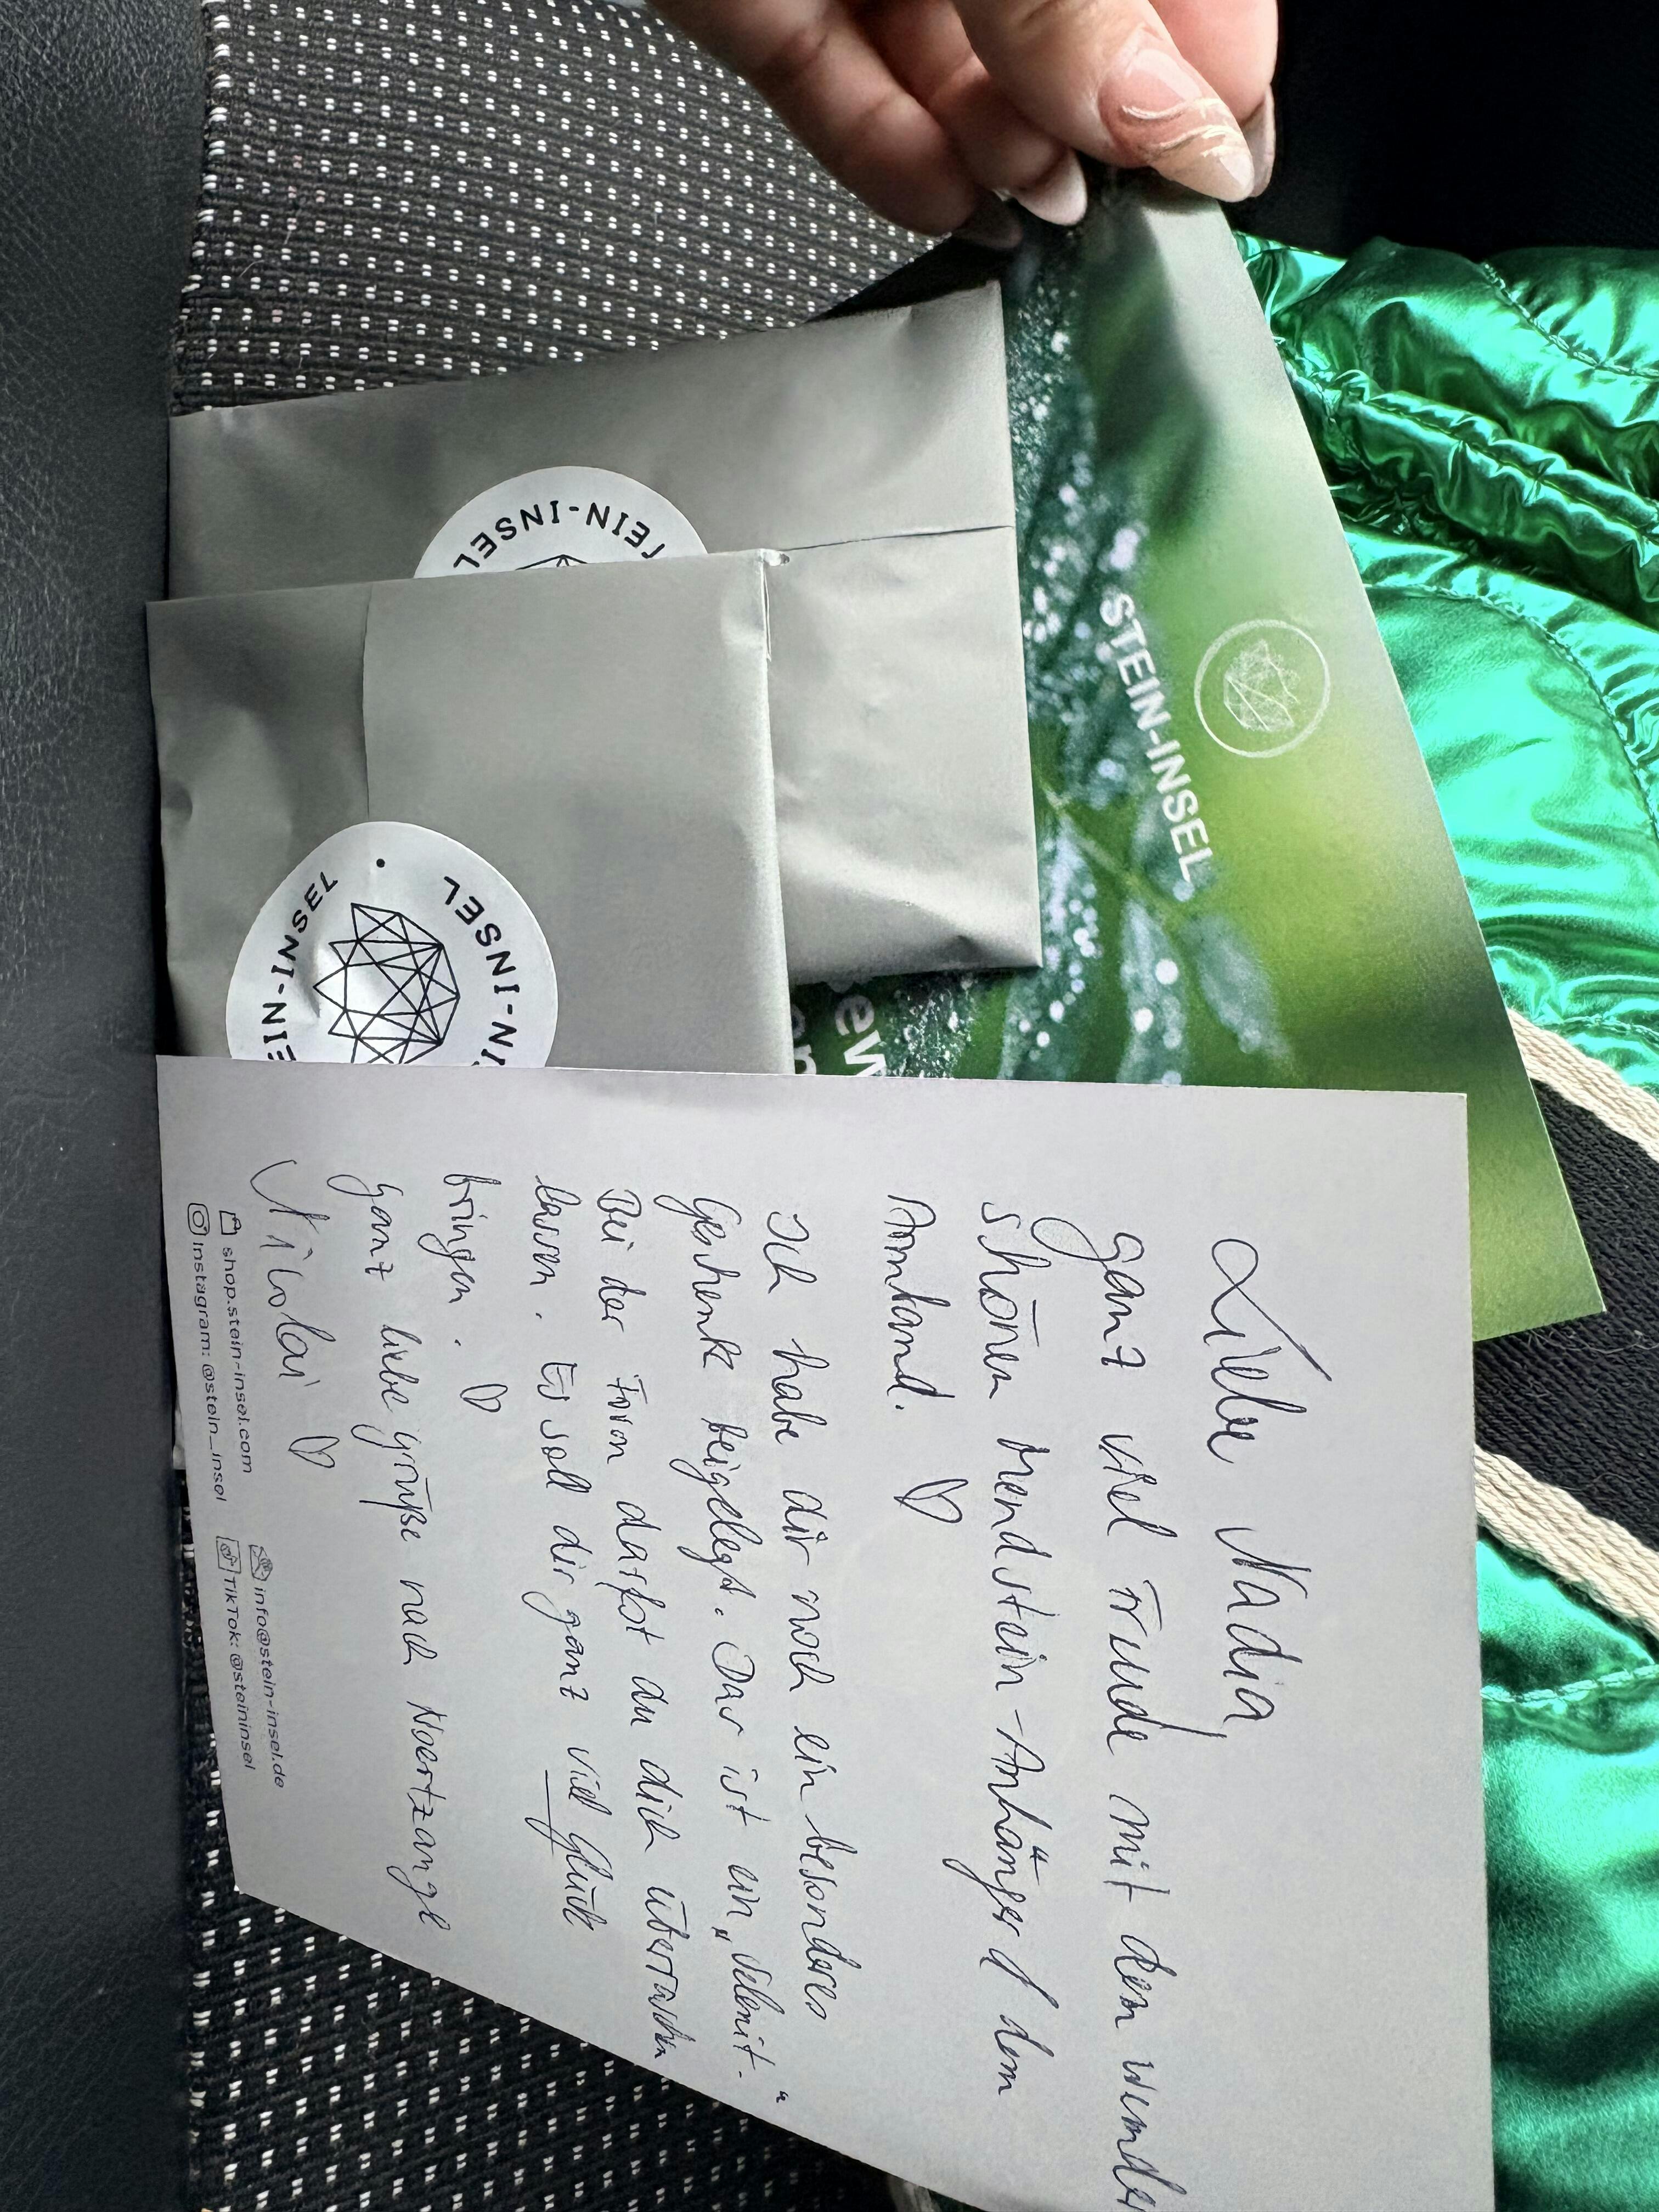 STEIN-INSEL
TEIN-INSEL
IN-INSEL
EIN-INSEL
Liebe Nadia,
ganz viel Freude mit dem wunder
schönen Mondstein-Anhänger & dem
Armband. ♡
Ich habe dir noch ein besonderes
Geschenk beigelegt. Das ist ein „Selenit-"
Bei der Form darfst du dich überraschen
lassen. Es soll dir ganz viel Glück
bringen. ♡
ganz liebe Grüße nach Noertzange
Nikolai ♡
shop.stein-insel.com info@stein-insel.de
Instagram: @stein_insel TikTok: @steininsel